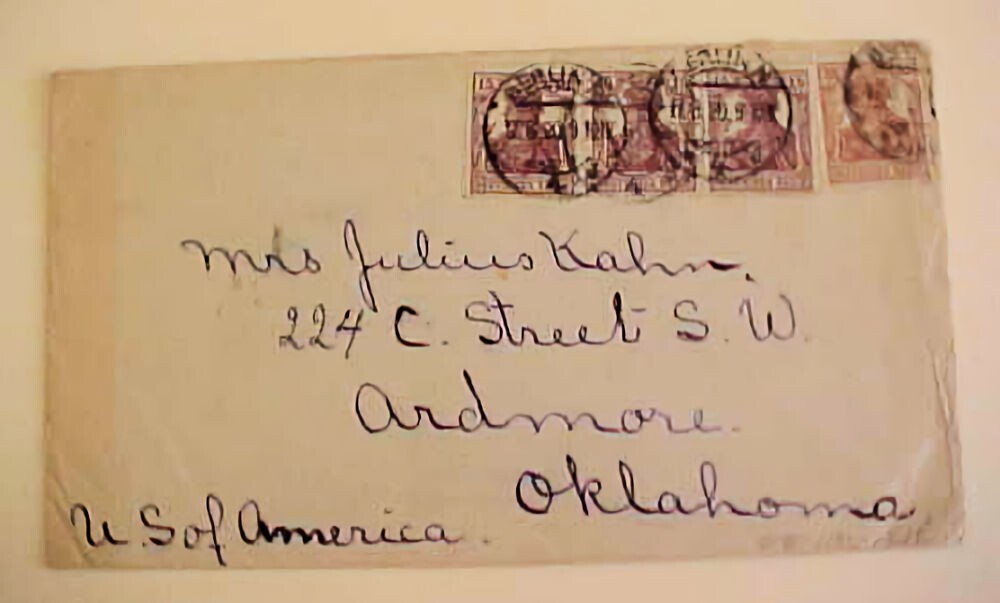 Mrs Julius Kahn.
224 C. Street S. W.
Ardmore.
Oklahoma
U. S of America.